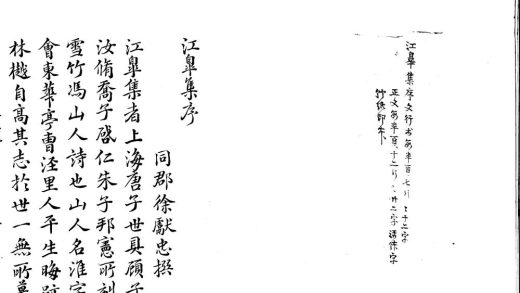 江皐集序文行书每半頁七行行十三字
正文每半頁十二行行廿二字
江皐集序
同郡徐獻忠撰
江皐集者上海唐子世具顧子
汝脩喬子啓仁朱子邦憲所刻
雪竹馮山人詩也山人名淮字
會東華亭曹涇里人平生晦跡
林樾自高其志於世一無所